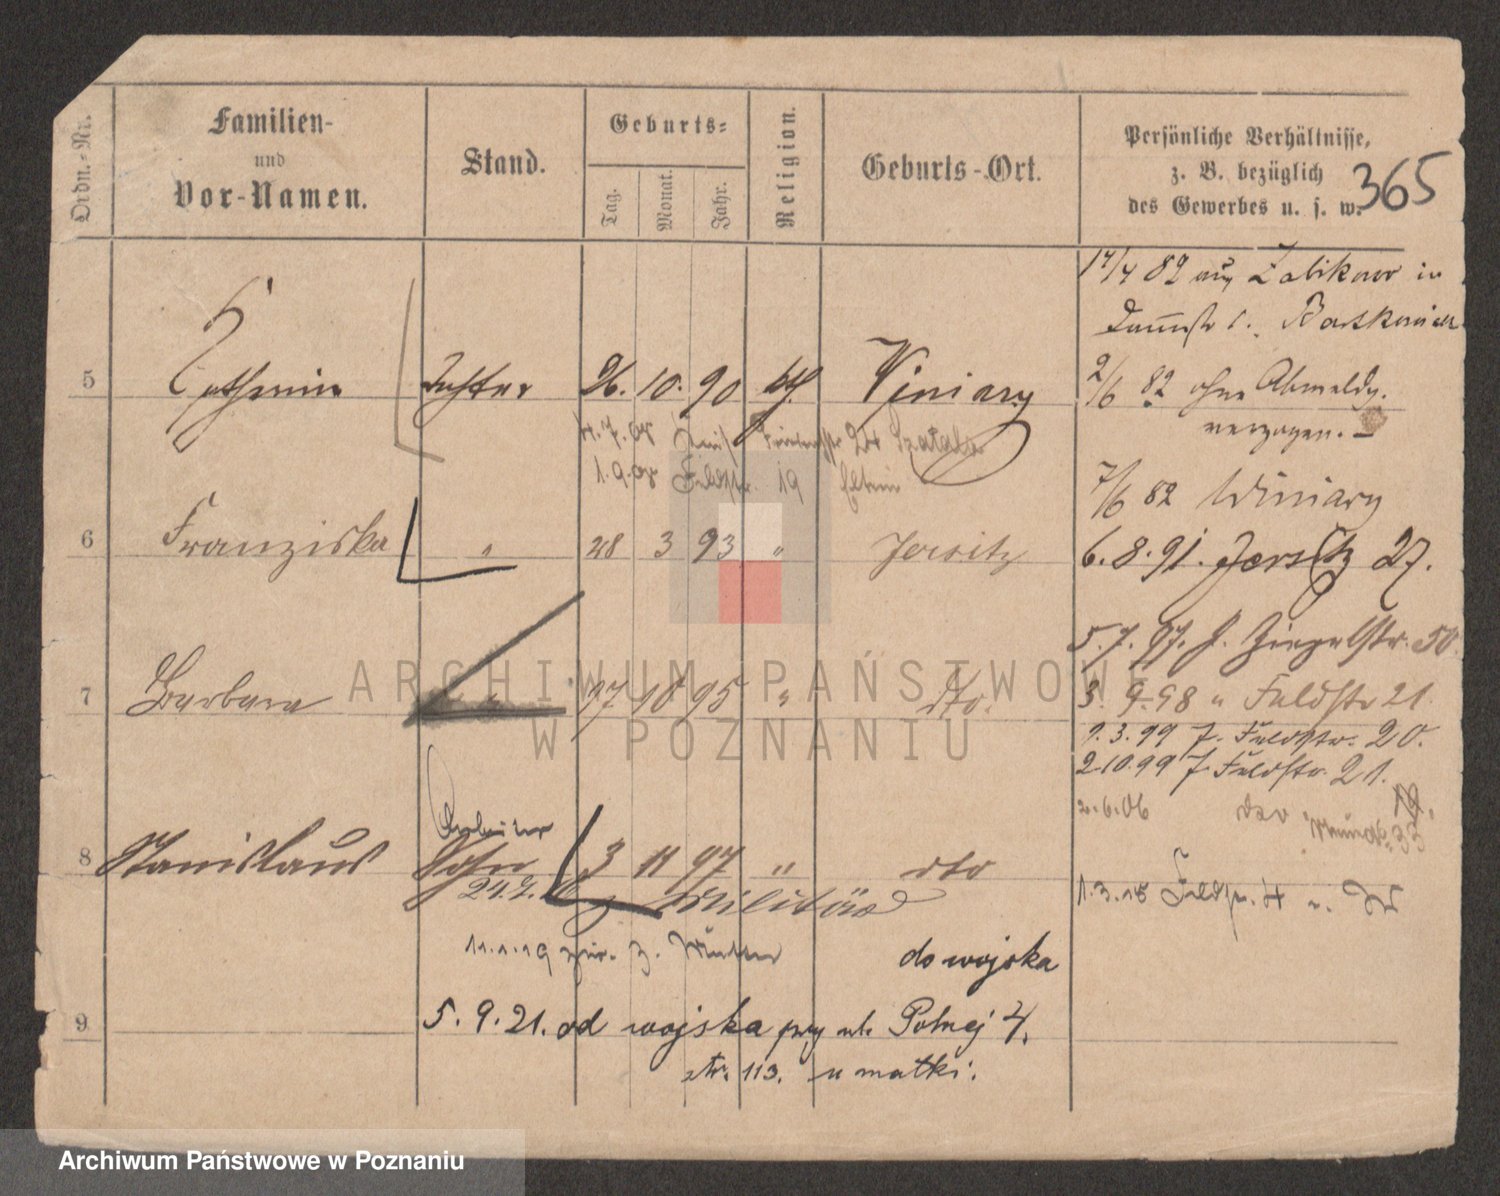 Ordn.-Nr.
Familien-
und
Vor-Namen.
Stand.
Geburts-
Tag.
Monat.
Jahr.
Religion.
Geburts-Ort.
Persönliche Verhältnisse,
z. B. bezüglich
des Gewerbes u. s. w.
365
17/4 82 aus Zabikowo in
2/6 82 ohne Abmeldg.
verzogen. —
7/6 82 Winiary
6.8.91. Jersitz 27.
5.7.97. J. Ziegelstr. 50.
3. 9.98 " Feldstr 21.
1.3.99 J. Feldstr. 20.
2.10.99 J. Feldstr. 21.
2.6.06
1.3.15 Feldstr. 4
5 Catharina Tochter 26. 10. 90 kth. Winiary
4.7.08 24 Szatala
1.9.08 Feldstr. 19 Eltern
6 Franziska " 28 3 93 " Jersitz
7 Barbara " 17 10 95 " dto.
Arbeiter
8 Stanislaus Sohn 3 11 97 " dto
Militär
11.1.19 zur. z. Mutter
do wojska
9
5.9.21. od wojska przy ul. Polnej 4.
str. 113. u matki.
ARCHIWUM PAŃSTWOWE
W POZNANIU
Archiwum Państwowe w Poznaniu